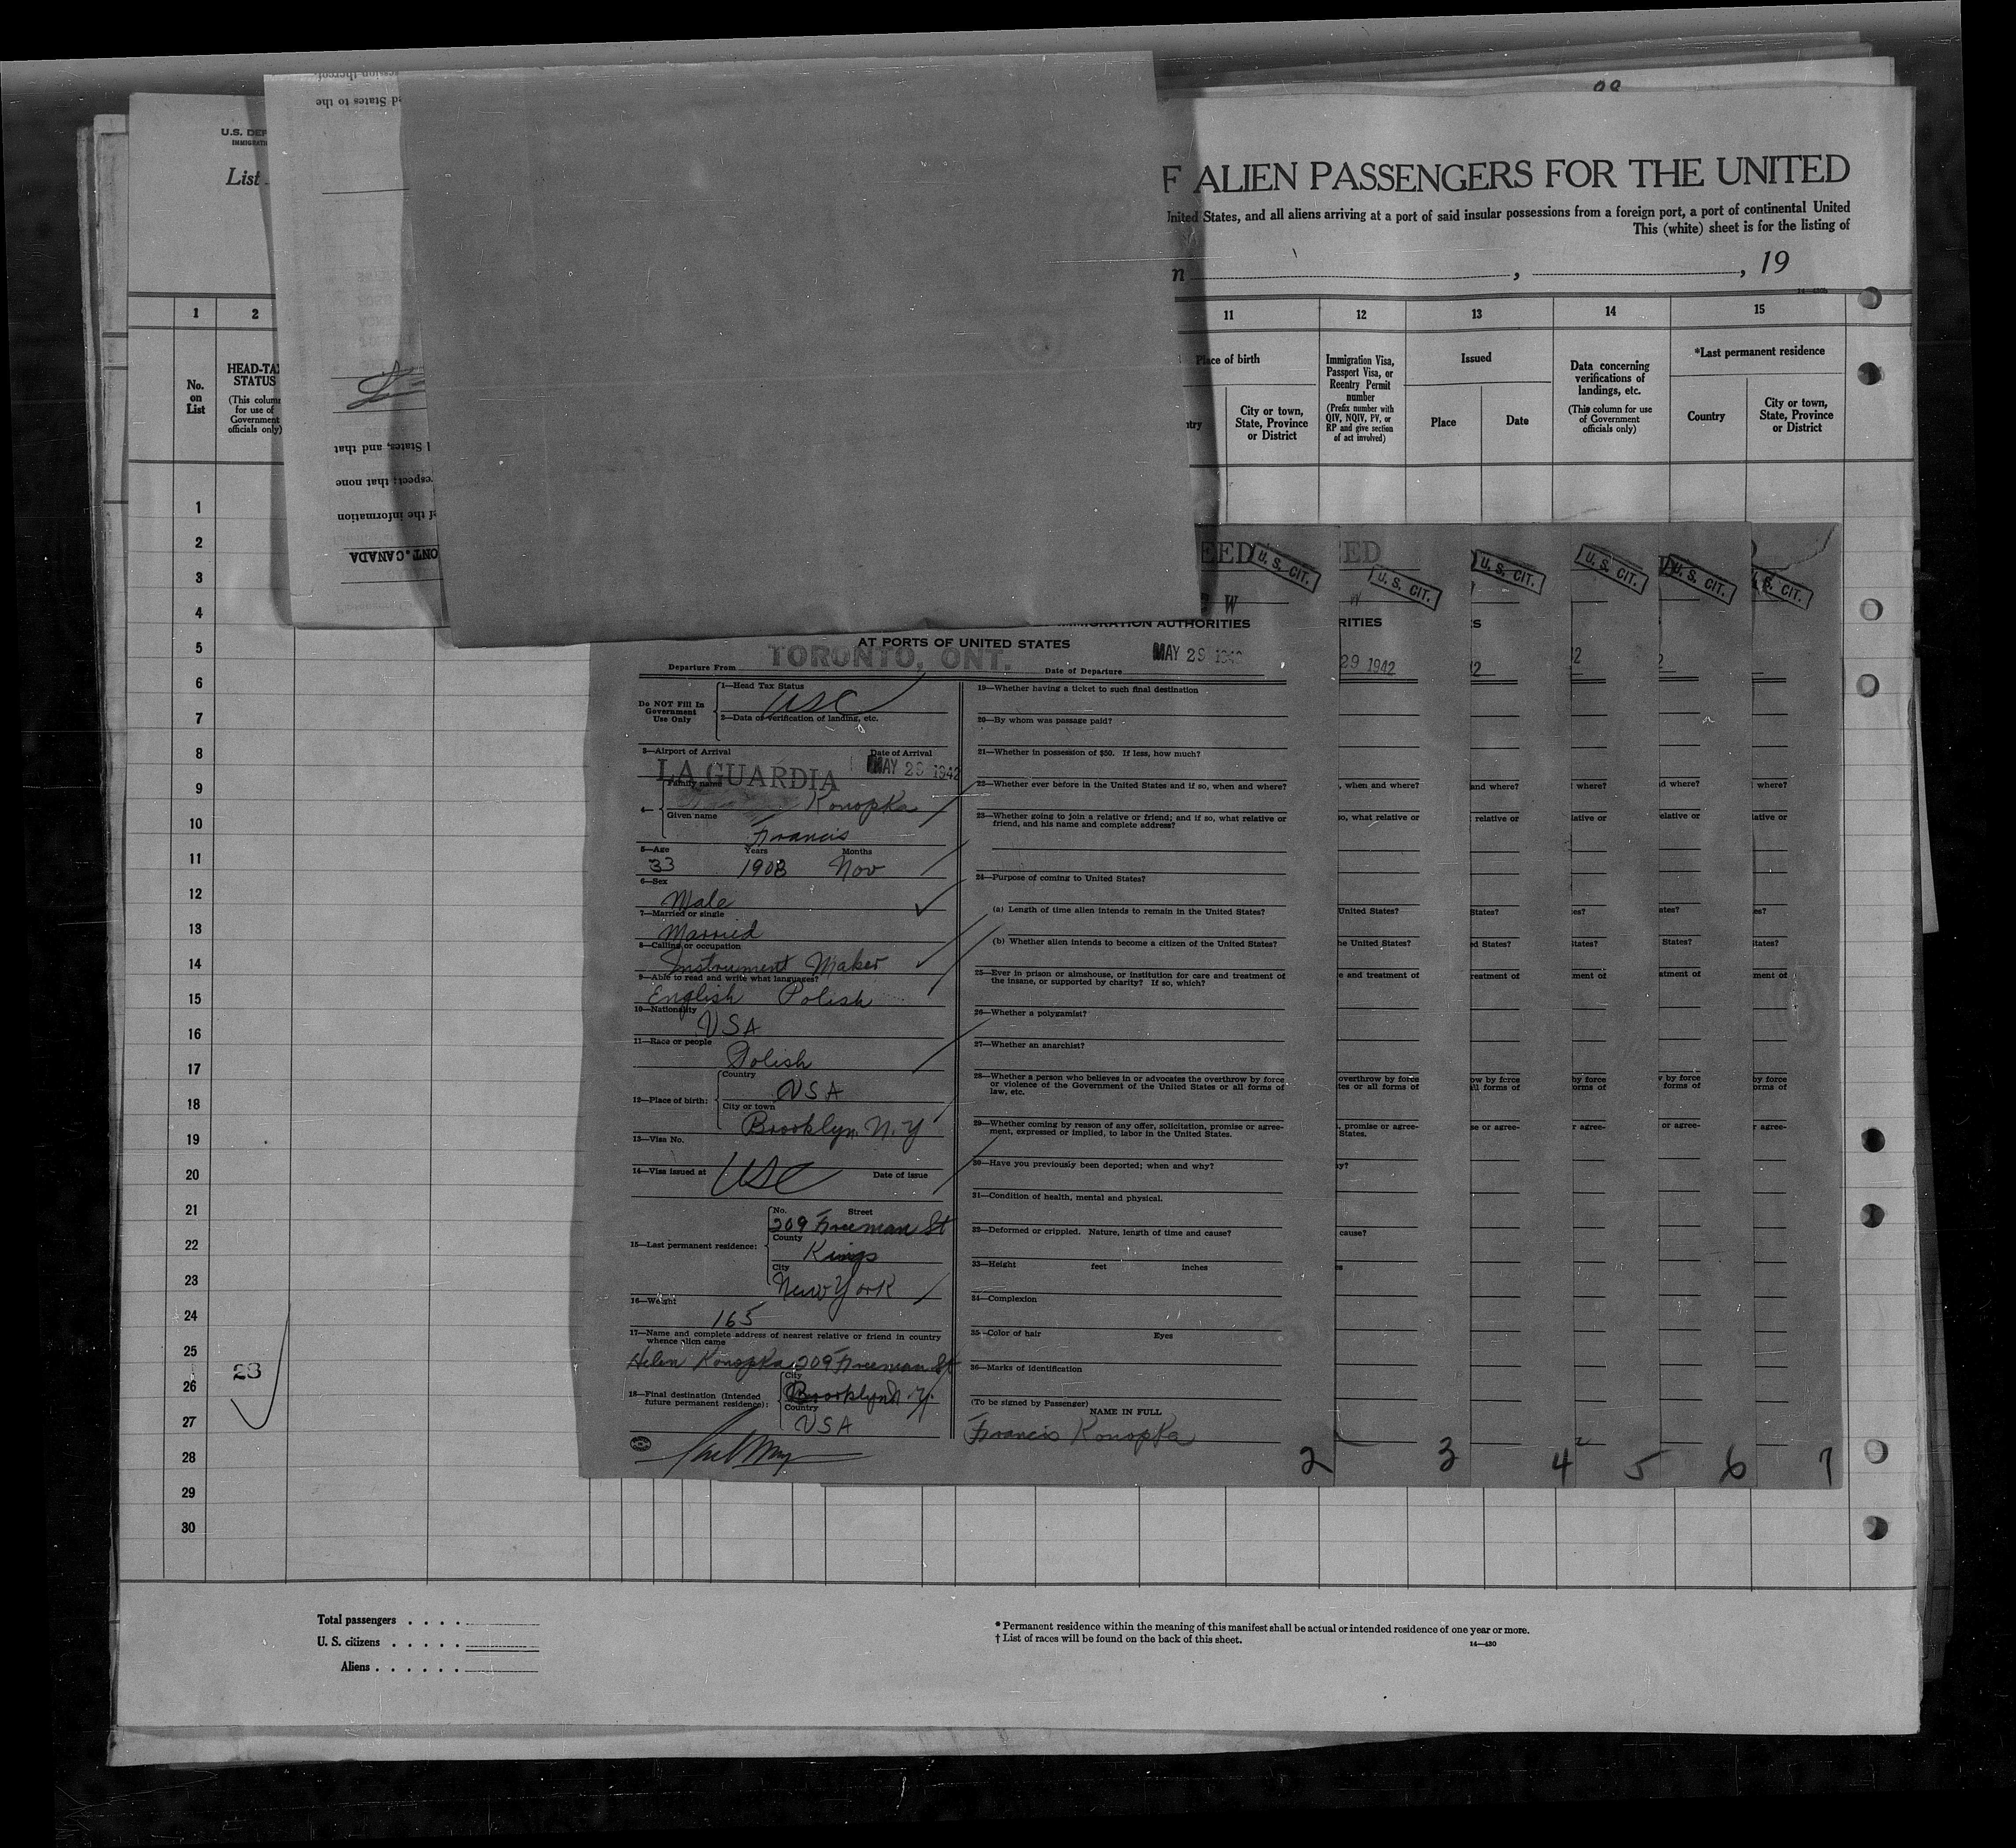 U.S. DEP
List
F ALIEN PASSENGERS FOR THE UNITED
United States, and all aliens arriving at a port of said insular possessions from a foreign port, a port of continental United
This (white) sheet is for the listing of
, 19
1 2 11 12 13 14 15
No. on List
HEAD-TAX STATUS
(This column for use of Government officials only)
Place of birth
City or town, State, Province or District
Immigration Visa, Passport Visa, or Reentry Permit number
(Prefix number with QIV, NQIV, PV, or RP and give section of act involved)
Issued
Place
Date
Data concerning verifications of landings, etc.
(This column for use of Government officials only)
*Last permanent residence
Country
City or town, State, Province or District
ed States to the
l States, and that
respect; that none
f the information
ONT. CANADA
1
2
3
4
5
6
7
8
9
10
11
12
13
14
15
16
17
18
19
20
21
22
23
24
25
26
27
28
29
30
23
U. S. CIT.
U. S. CIT.
U. S. CIT.
U. S. CIT.
U. S. CIT.
S. CIT.
IMMIGRATION AUTHORITIES
AT PORTS OF UNITED STATES
Departure From TORONTO, ONT. Date of Departure MAY 29 1942
Do NOT Fill In Government Use Only
1—Head Tax Status
USC
2—Data of verification of landing, etc.
3—Airport of Arrival Date of Arrival
LA GUARDIA MAY 29 1942
4— Family name
Konopka
Given name
Francis
5—Age Years Months
33 1908 Nov
6—Sex
Male
7—Married or single
Married
8—Calling or occupation
Instrument Maker
9—Able to read and write what languages?
English Polish
10—Nationality
USA
11—Race or people
Polish
12—Place of birth:
Country
USA
City or town
Brooklyn, N.Y
13—Visa No.
14—Visa issued at USC Date of issue
15—Last permanent residence:
No. Street
209 Freeman St
County
Kings
City
New York
16—Weight
165
17—Name and complete address of nearest relative or friend in country
whence alien came
Helen Konopka 209 Freeman St
18—Final destination (Intended
future permanent residence):
City
Brooklyn N.Y.
Country
USA
19—Whether having a ticket to such final destination
20—By whom was passage paid?
21—Whether in possession of $50. If less, how much?
22—Whether ever before in the United States and if so, when and where?
23—Whether going to join a relative or friend; and if so, what relative or
friend, and his name and complete address?
24—Purpose of coming to United States?
(a) Length of time alien intends to remain in the United States?
(b) Whether alien intends to become a citizen of the United States?
25—Ever in prison or almshouse, or institution for care and treatment of
the insane, or supported by charity? If so, which?
26—Whether a polygamist?
27—Whether an anarchist?
28—Whether a person who believes in or advocates the overthrow by force
or violence of the Government of the United States or all forms of
law, etc.
29—Whether coming by reason of any offer, solicitation, promise or agree-
ment, expressed or implied, to labor in the United States.
30—Have you previously been deported; when and why?
31—Condition of health, mental and physical.
32—Deformed or crippled. Nature, length of time and cause?
33—Height feet inches
34—Complexion
35—Color of hair Eyes
36—Marks of identification
(To be signed by Passenger)
NAME IN FULL
Francis Konopka
2 3 4 5 6 7
Total passengers . . . .
U. S. citizens . . . . .
Aliens . . . . . .
* Permanent residence within the meaning of this manifest shall be actual or intended residence of one year or more.
† List of races will be found on the back of this sheet.
14—430